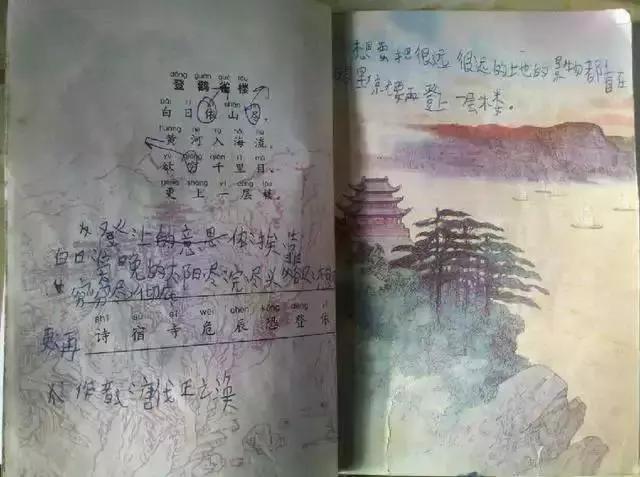 dēng guàn què lóu
登鹳雀楼
bái rì yī shān jìn
白日依山尽，
huáng hé rù hǎi liú
黄河入海流。
yù qióng qiān lǐ mù
欲穷千里目，
gèng shàng yì céng lóu
更上一层楼。
登上的意思 依挨 靠
白日 晚的太阳尽完尽头欲想
穷穷尽
shī sù sì wēi chén kǒng dēng yī
诗宿寺危辰恐登依
更再
作者 唐代王之涣
想要把很远很远的土也的景物都看在
眼里京尤要再登上一层楼。